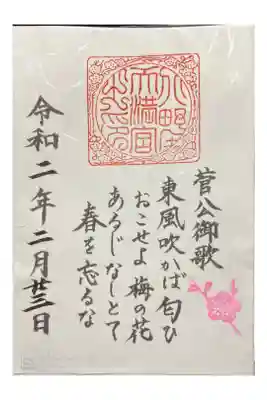 菅公御歌
東風吹かば匂ひ
おこせよ梅の花
あるじなしとて
春を忘るな
令和二年二月廿三日